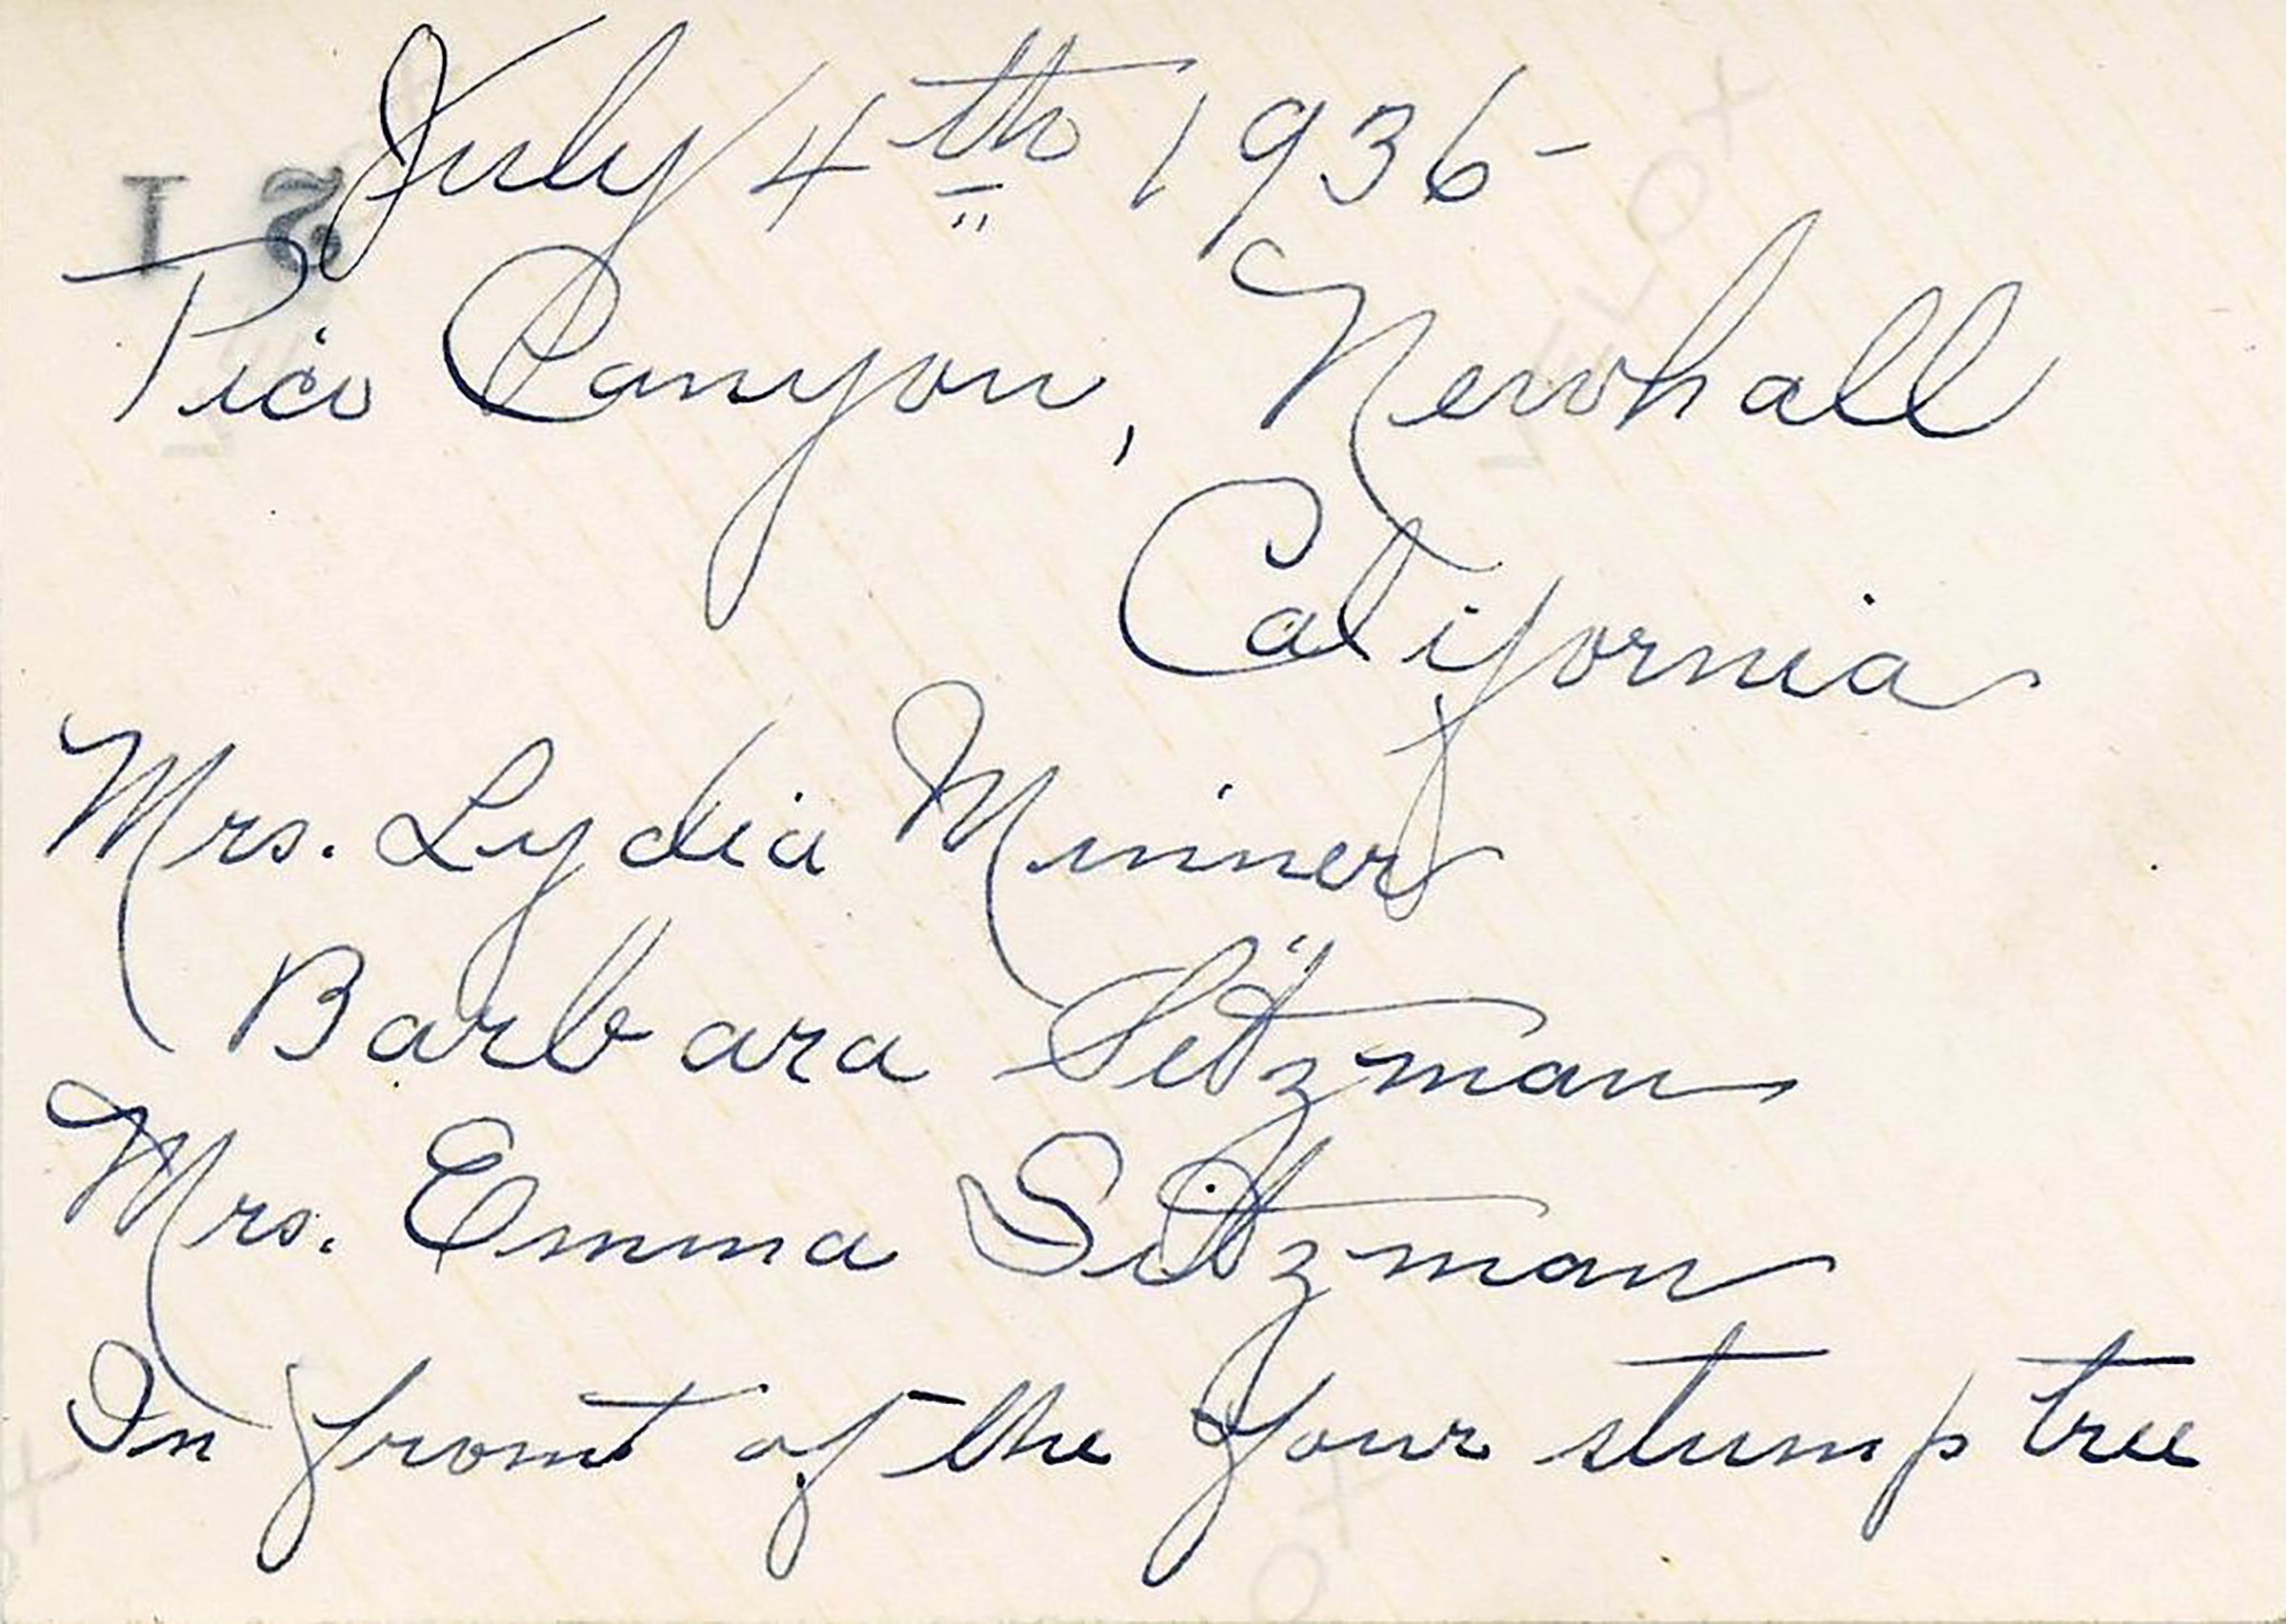 July 4th 1936-
Pico Canyon, Newhall
California
Mrs. Lydia Minner
Barbara Sitzman
Mrs. Emma Sitzman
In front of the four stump tree